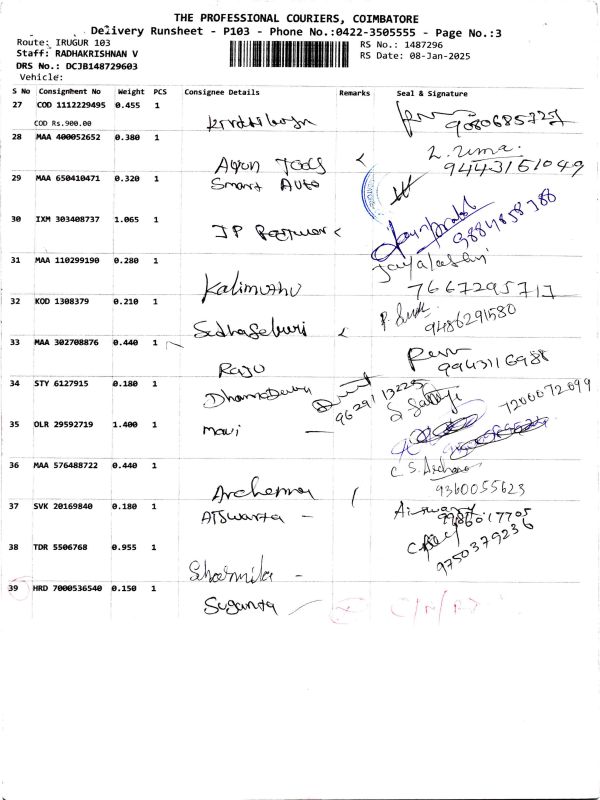 THE PROFESSIONAL COURIERS, COIMBATORE
Delivery Runsheet - P103 - Phone No.:0422-3505555 - Page No.:3
Route: IRUGUR 103
RS No.: 1487296
Staff: RADHAKRISHNAN V
RS Date: 08-Jan-2025
DRS No.: DCJB148729603
Vehicle:
S No Consignment No Weight PCS Consignee Details Remarks Seal & Signature
27 COD 1112229495 0.455 1
COD Rs.900.00
9080685727
28 MAA 400052652 0.380 1
L. Uma.
9443161049
Tools
29 MAA 650410471 0.320 1
Smart Auto
30 IXM 303408737 1.065 1
JP
9884858388
31 MAA 110299190 0.280 1
Kalimuthu
7667295717
32 KOD 1308379 0.210 1
9486291580
33 MAA 302708876 0.440 1
Raju
9943116988
34 STY 6127915 0.180 1
9629113225
7200072099
35 OLR 29592719 1.400 1
mani
36 MAA 576488722 0.440 1
C. S. Archana
9360055623
Archenna
37 SVK 20169840 0.180 1
AISwarya
Aiswarya
38 TDR 5506768 0.955 1
9750379236
Sharmila
39 HRD 7000536540 0.150 1
Suganya